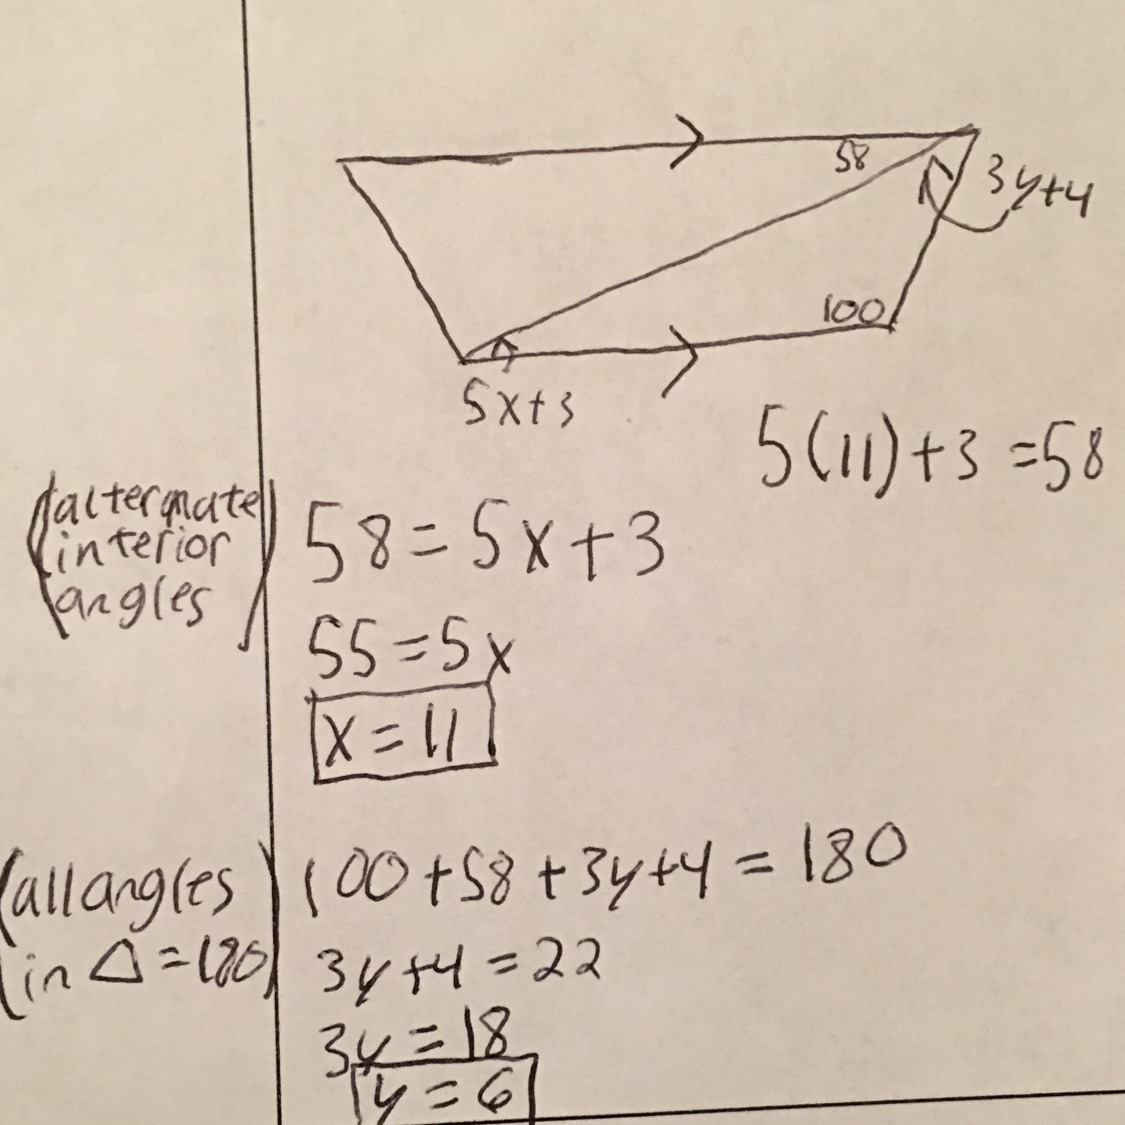 58
3y+4
100
5x+3
5(11)+3=58
(alternate
interior
angles)
58=5x+3
55=5x
x=11
(all angles
in △=180)
100+58+3y+4=180
3y+4=22
3y=18
y=6